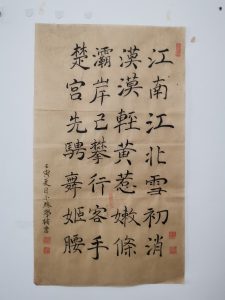 江南江北雪初消
漠漠輕黃惹嫩條
灞岸已攀行客手
楚宫先騁舞姬腰